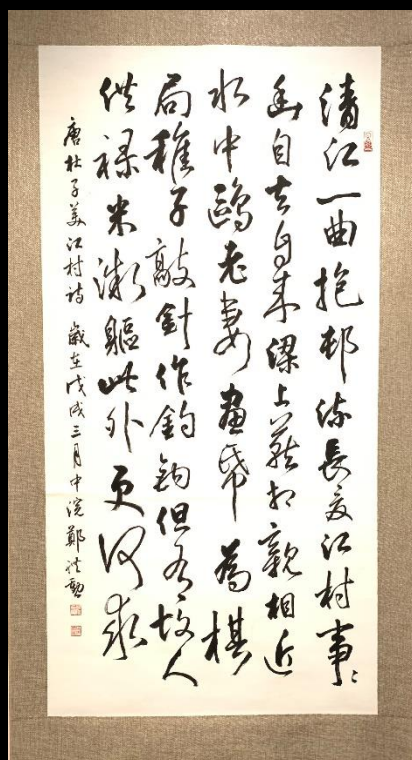 清江一曲抱邨流長夏江村事〻
幽自去自来梁上燕相親相近
水中鷗老妻畫帋為棋
局稚子敲針作釣鈎但有故人
供禄米微軀此外更何求
唐杜子美江村詩 歲在戊戌三月中浣 鄭